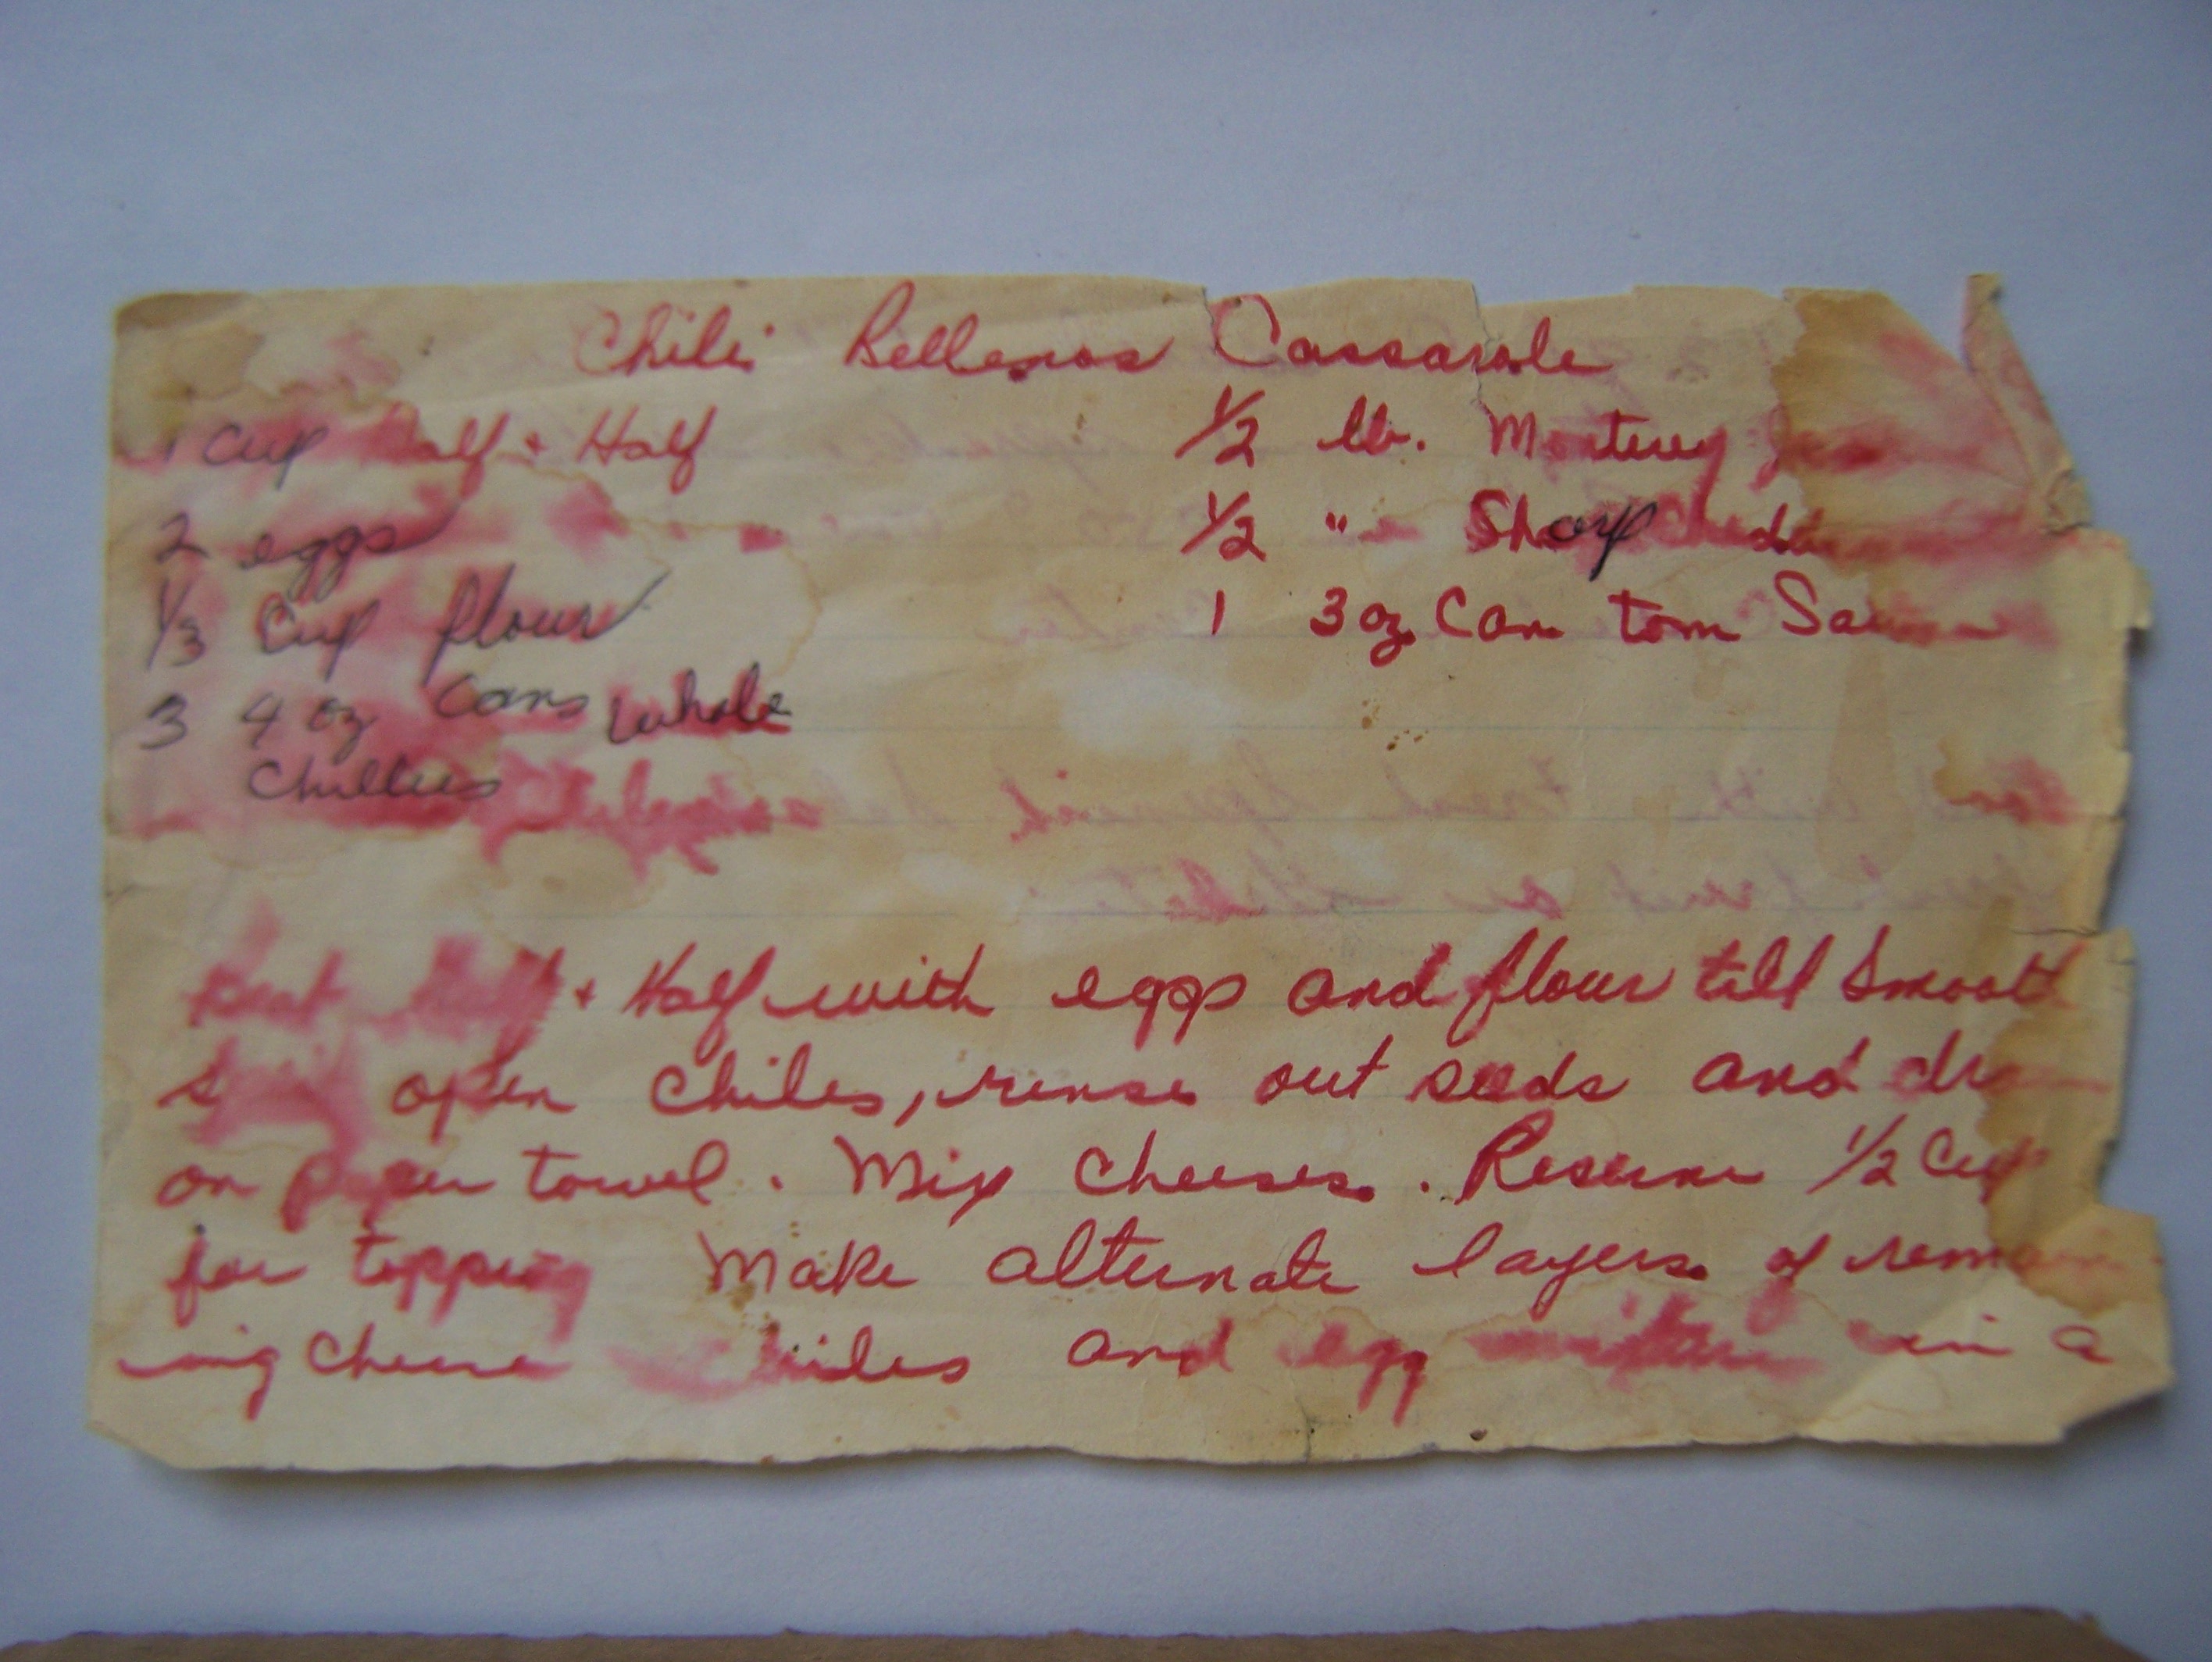 Chili Rellenos Cassarole
1 Cup Half + Half
2 eggs
1/3 Cup flour
3 4 oz Cans Whole
Chillies
1/2 lb. Monterey Jack
1/2 " Sharp Cheddar
1 3 oz Can tom Sauce
Beat Half + Half with eggs and flour till Smooth
open Chiles, rinse out seeds and
on paper towel. Mix Cheeses. Reserve 1/2 Cup
for topping Make alternate layers of remain
ing Cheese Chiles and egg mixture in a